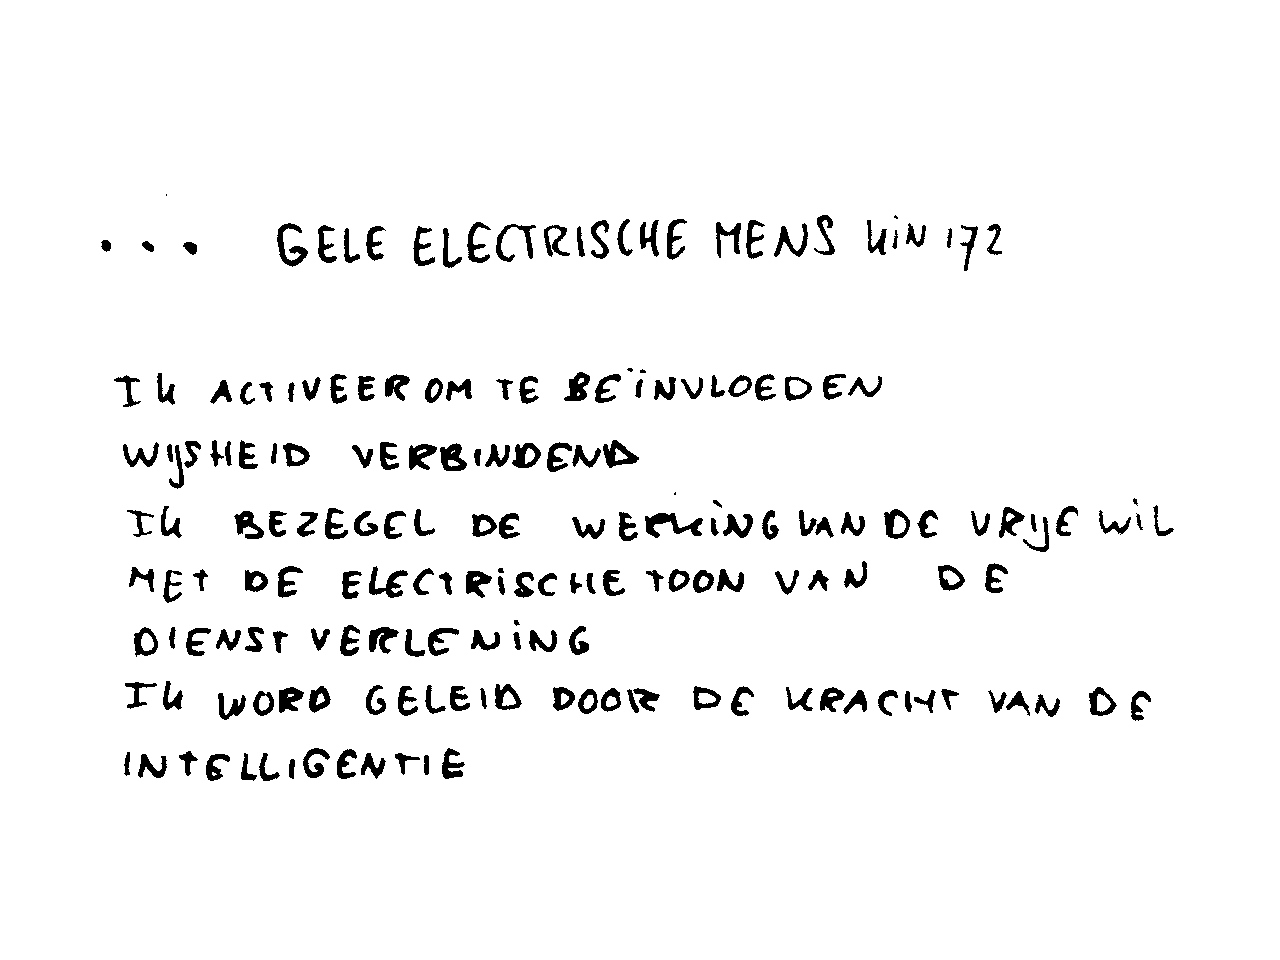 ... GELE ELECTRISCHE MENS KIN 172
IK ACTIVEER OM TE BEÏNVLOEDEN
WIJSHEID VERBINDEND
IK BEZEGEL DE WERKING VAN DE VRIJE WIL
MET DE ELECTRISCHE TOON VAN DE
DIENSTVERLENING
IK WORD GELEID DOOR DE KRACHT VAN DE
INTELLIGENTIE